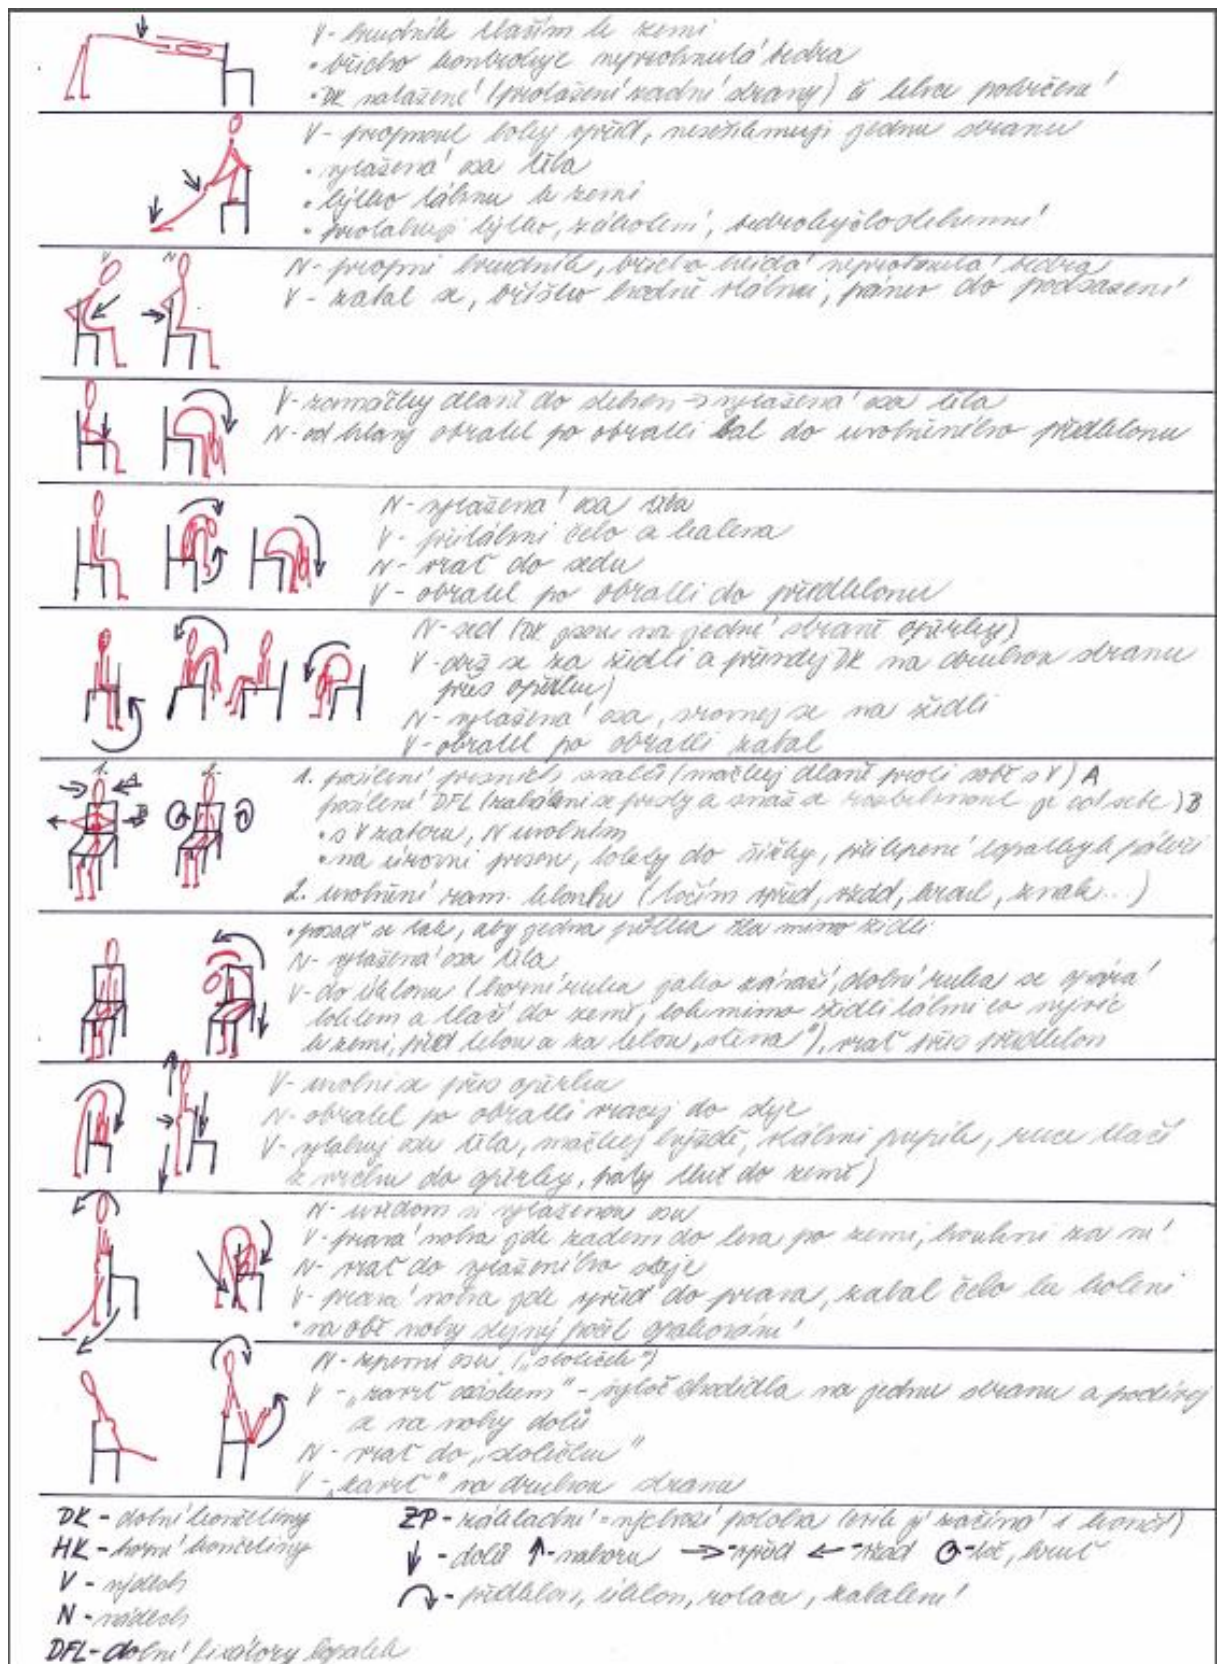 V - hrudník tlačím k zemi
• břicho kontroluje neprohnutá bedra
• DK natažené (protažení zadní strany) či lehce pokrčené
V - propnout lokty vpřed, nesešikmuji jednu stranu
• vytažená osa těla
• lýtko táhnu k zemi
• protahuji lýtko, zákolení, bedrokyčlostehenní
V N
N - propni hrudník, břicho hlídá neprohnutá bedra
V - zabal se, bříško hodně vtáhni, pánev do podsazení
V - zamačkej dlaně do stehen → vytažená osa těla
N - od hlavy obratel po obratli bal do uvolněného předklonu
N - vytažená osa těla
V - přitáhni čelo a kolena
N - vrať do sedu
V - obratel po obratli do předklonu
N - sed (DK jsou na jedné straně opěrky)
V - drž se za židli a přendej DK na druhou stranu
přes opěrku)
N - vytažená osa, srovnej se na židli
V - obratel po obratli zabal
1. A B 2.
1. posílení prsních svalů (mačkej dlaně proti sobě s V) A
posílení DFL (zahákni se prsty a snaž se roztrhnout je od sebe) B
• s V zaberu, N uvolním
• na úrovni prsou, lokty do šířky, přilepené lopatky k páteři
2. uvolnění ram. kloubu (točím vpřed, vzad, kraul, znak...)
• posaď se tak, aby jedna půlka šla mimo židli
N - vytažená osa těla
V - do úklonu (horní ruka jako závaží, dolní ruka se opírá
loktem a tlačí do země, bok mimo židli táhni co nejvíc
k zemi, před tebou a za tebou "stěna"), vrať přes předklon
V - uvolni se přes opěrku
N - obratel po obratli vracej do stoje
V - vytahuj osu těla, mačkej hýždě, vtáhni pupík, ruce tlačí
z vrchu do opěrky, paty tlač do země)
N - uvědom si vytaženou osu
V - pravá noha jde zadem do leva po zemi, koukni za ní
N - vrať do vytaženého stoje
V - pravá noha jde vpřed do prava, zabal čelo ke koleni
• na obě nohy stejný počet opakování
N - zpevni osu ("stoleček")
V - "zavrť ocáskem" - vytoč chodidla na jednu stranu a podívej
se na nohy dolů
N - vrať do "stolečku"
V - "zavrť" na druhou stranu
DK - dolní končetiny
HK - horní končetiny
V - výdech
N - nádech
DFL - dolní fixátory lopatek
ZP - základní = výchozí poloha (cvik jí začíná i končí)
↓ - dolů ↑ - nahoru → - vpřed ← - vzad - toč, kruž
- předklon, úklon, rotace, zabalení